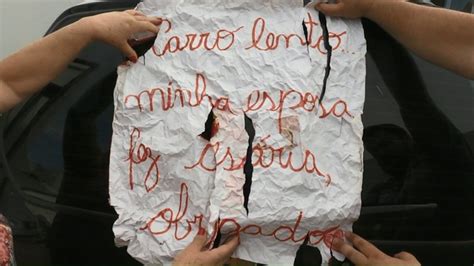 Carro lento..
minha esposa
fez cesária,
obrigado